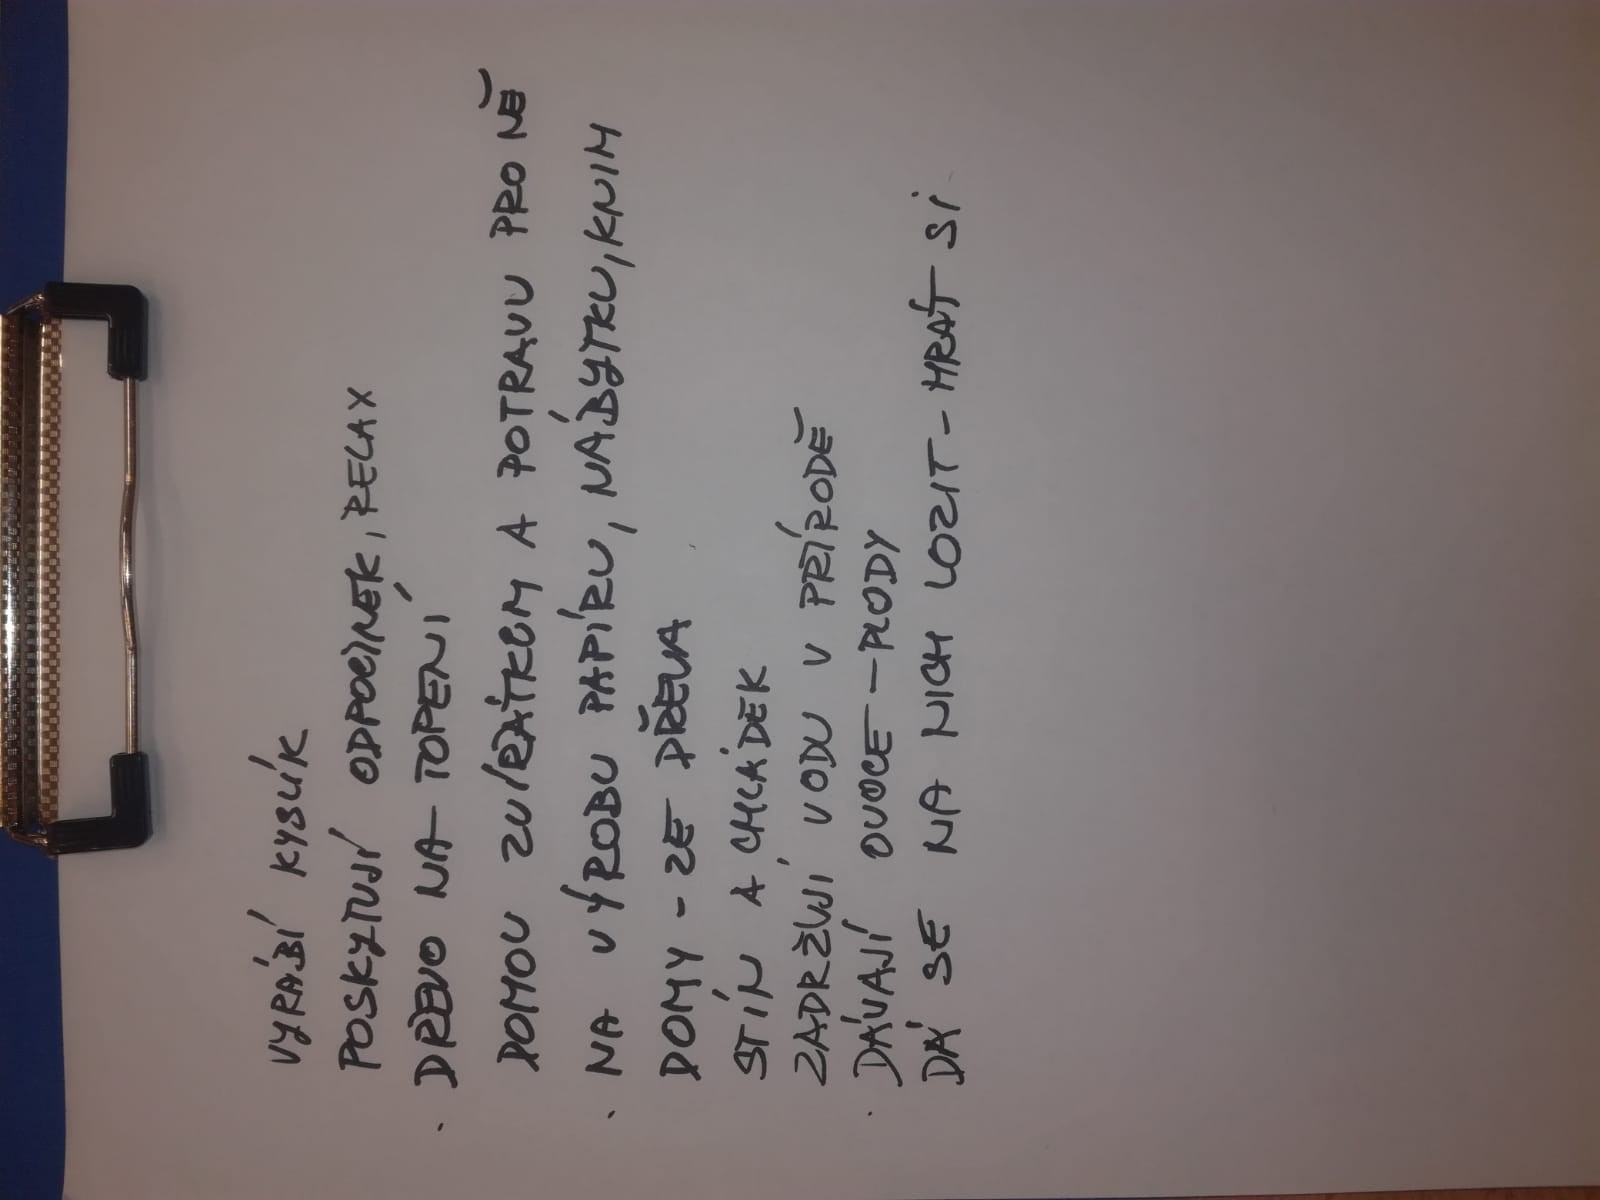 VYRÁBÍ KYSLÍK
POSKYTUJÍ ODPOČINEK, RELAX
· DŘEVO NA TOPENÍ
DOMOV ZVÍŘÁTKEM A POTRAVU PRO NĚ
· NA VÝROBU PAPÍRU, NÁBYTKU, KNIH
DOMY - ZE DŘEVA
STÍN A CHLÁDEK
ZADRŽUJÍ VODU V PŘÍRODĚ
· DÁVAJÍ OVOCE - PLODY
DÁ SE NA NICH LOZIT - HRÁT SI